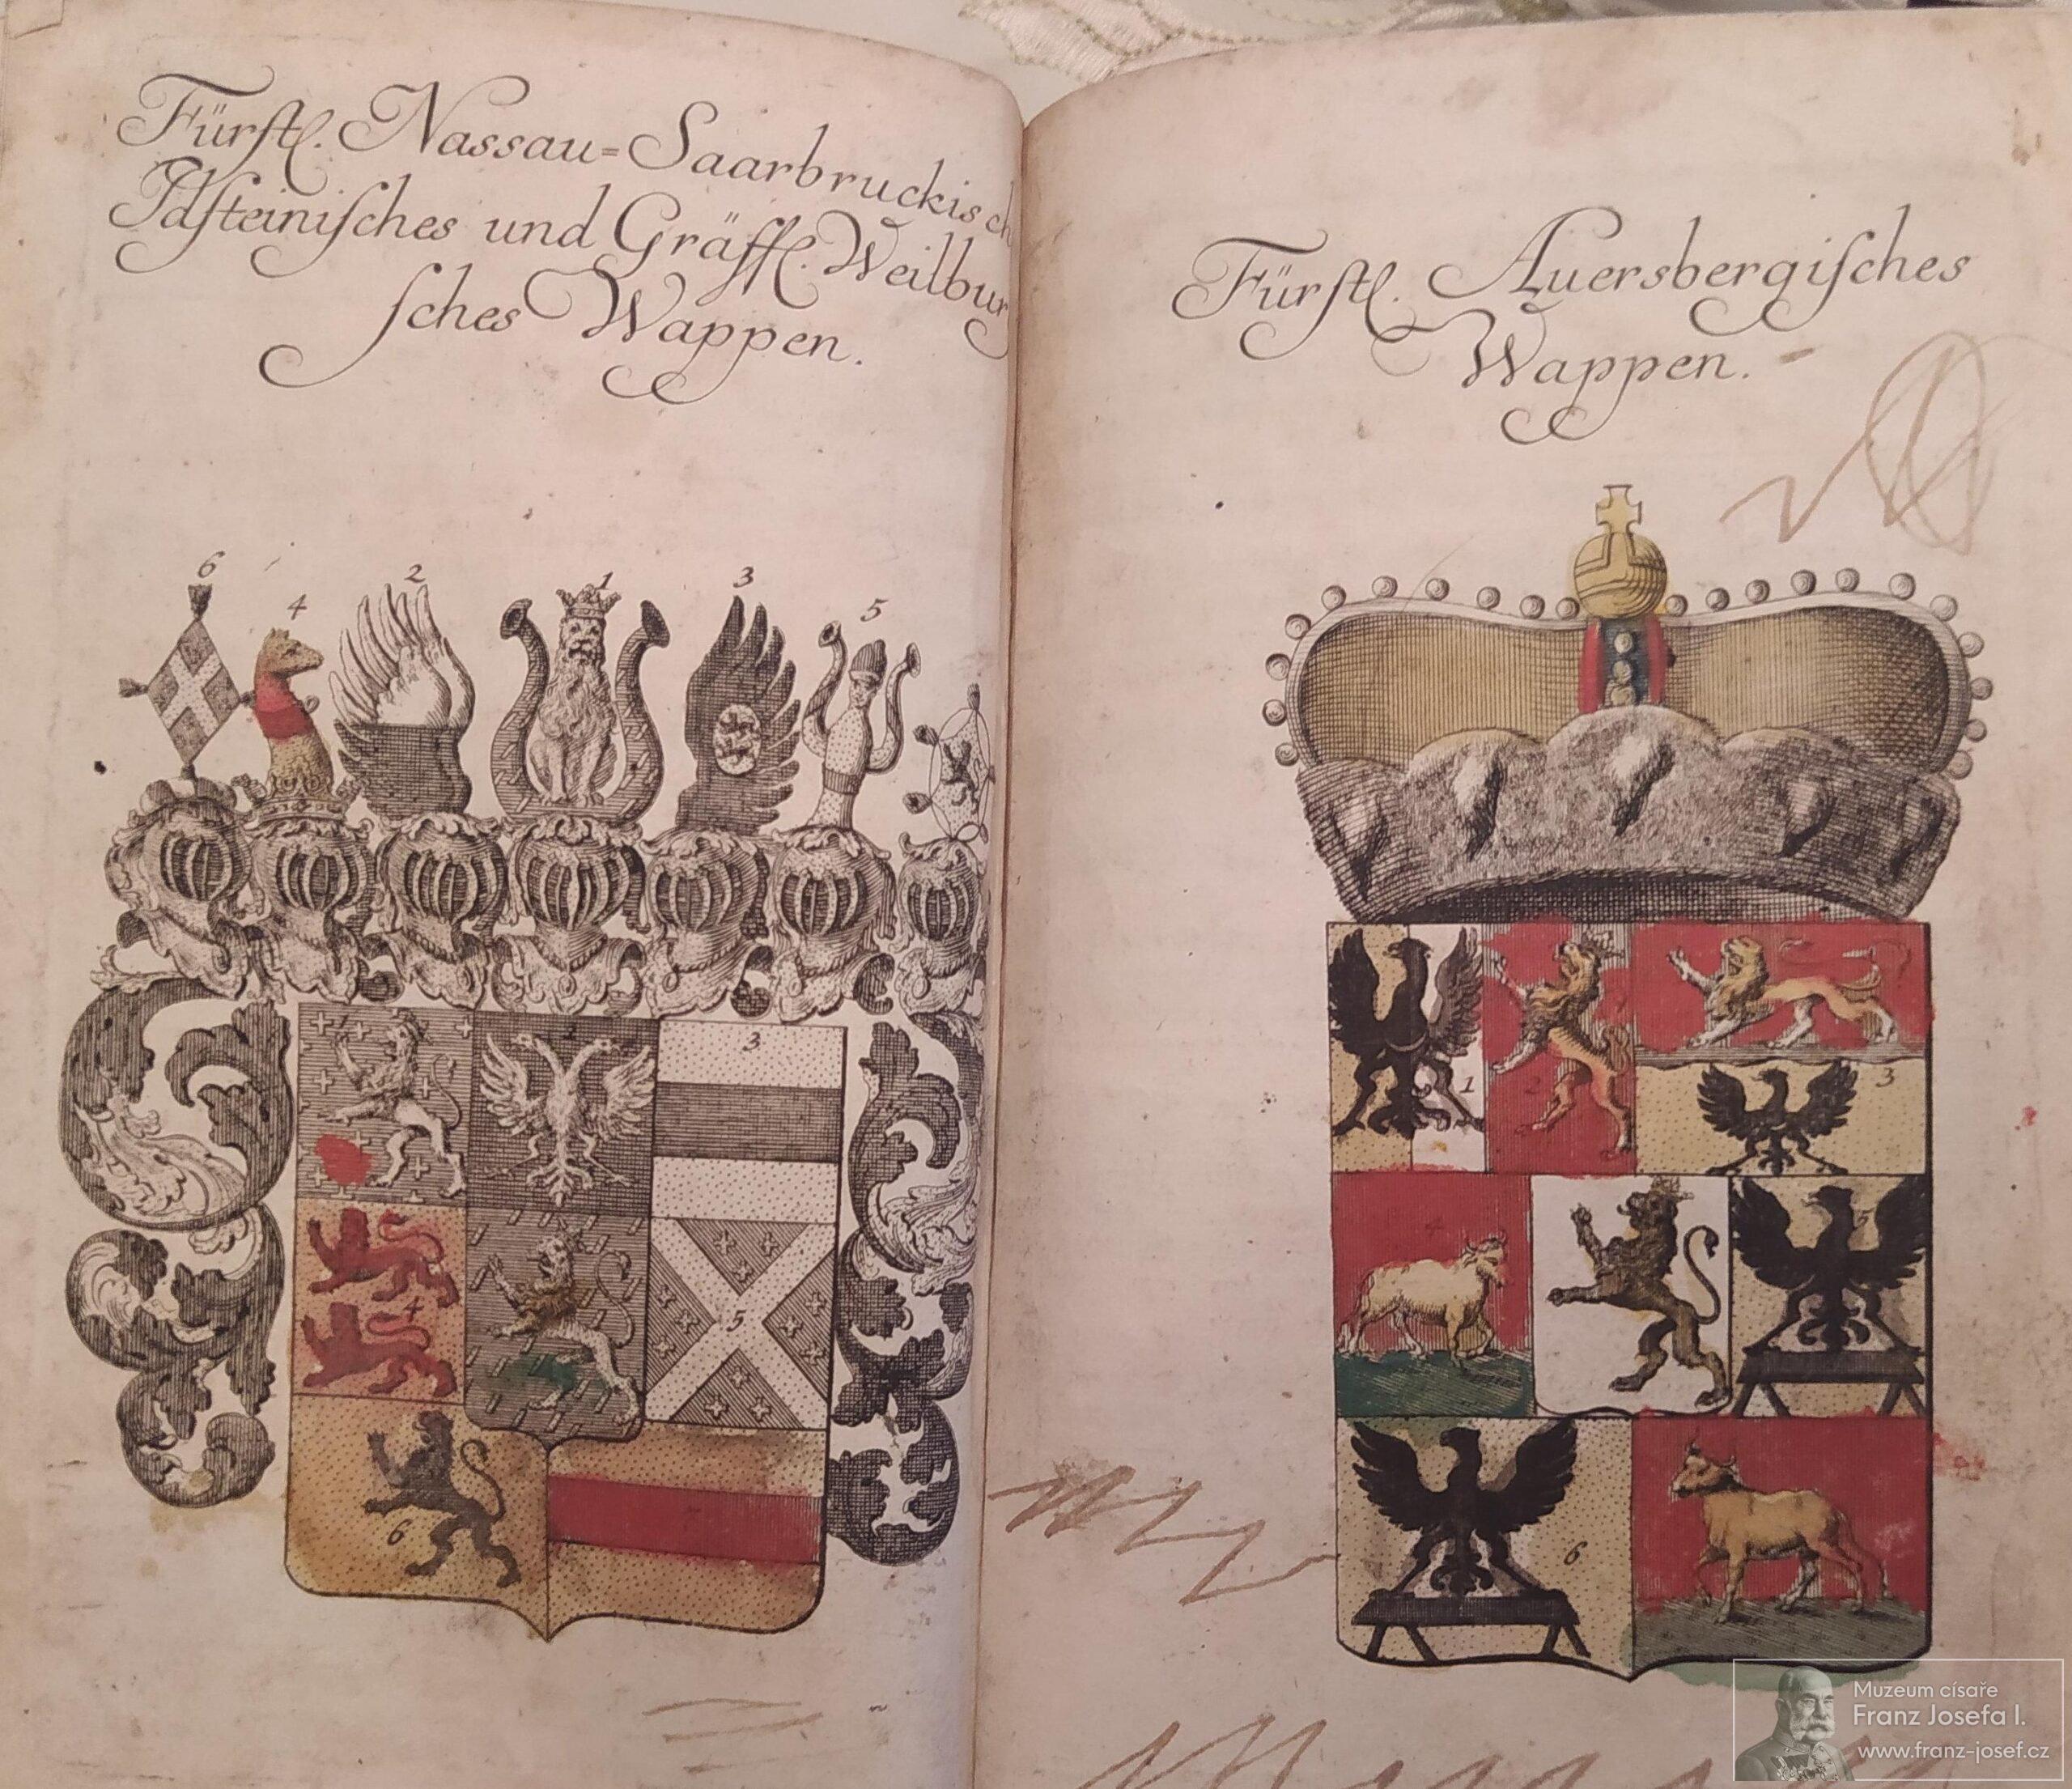 Fürstl. Nassau=Saarbruckisch
Idsteinisches und Gräffl. Weilbur
sches Wappen.
6
4
2
1
3
5
1
3
4
5
6
7
Fürstl. Auersbergisches
Wappen.
1
2
3
4
5
6
Muzeum císaře
Franz Josefa I.
www.franz-josef.cz